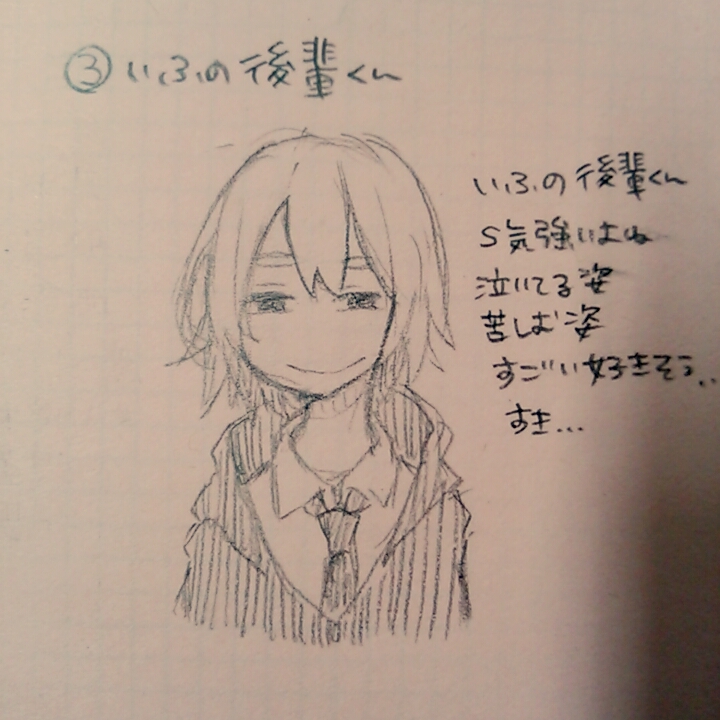 ③ いふの後輩くん
いふの後輩くん
S気強いよね
泣いてる姿
苦しむ姿
すごい好きそう..
すき...